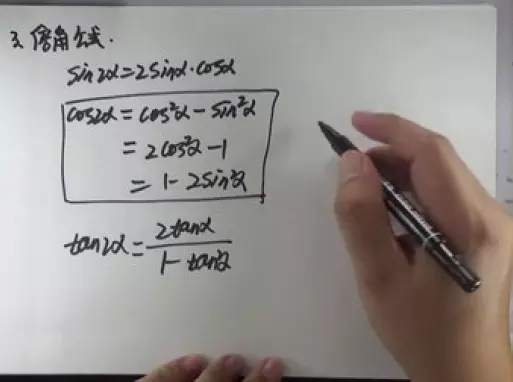 3、倍角公式.
sin2α=2sinα·cosα
cos2α=cos²α-sin²α
=2cos²α-1
=1-2sin²α
tan2α=\frac{2tanα}{1-tan²α}